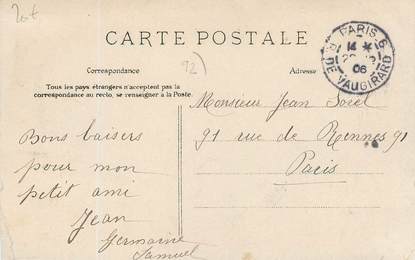 20f
CARTE POSTALE
Correspondance
92
Adresse
Tous les pays étrangers n'acceptent pas la
correspondance au recto, se renseigner à la Poste.
PARIS 6
14 *
06
R. DE VAUGIRARD
Monsieur Jean Sorel
91 rue de Rennes 91
Paris
Bons baisers
pour mon
petit ami
Jean
Germaine
Samuel